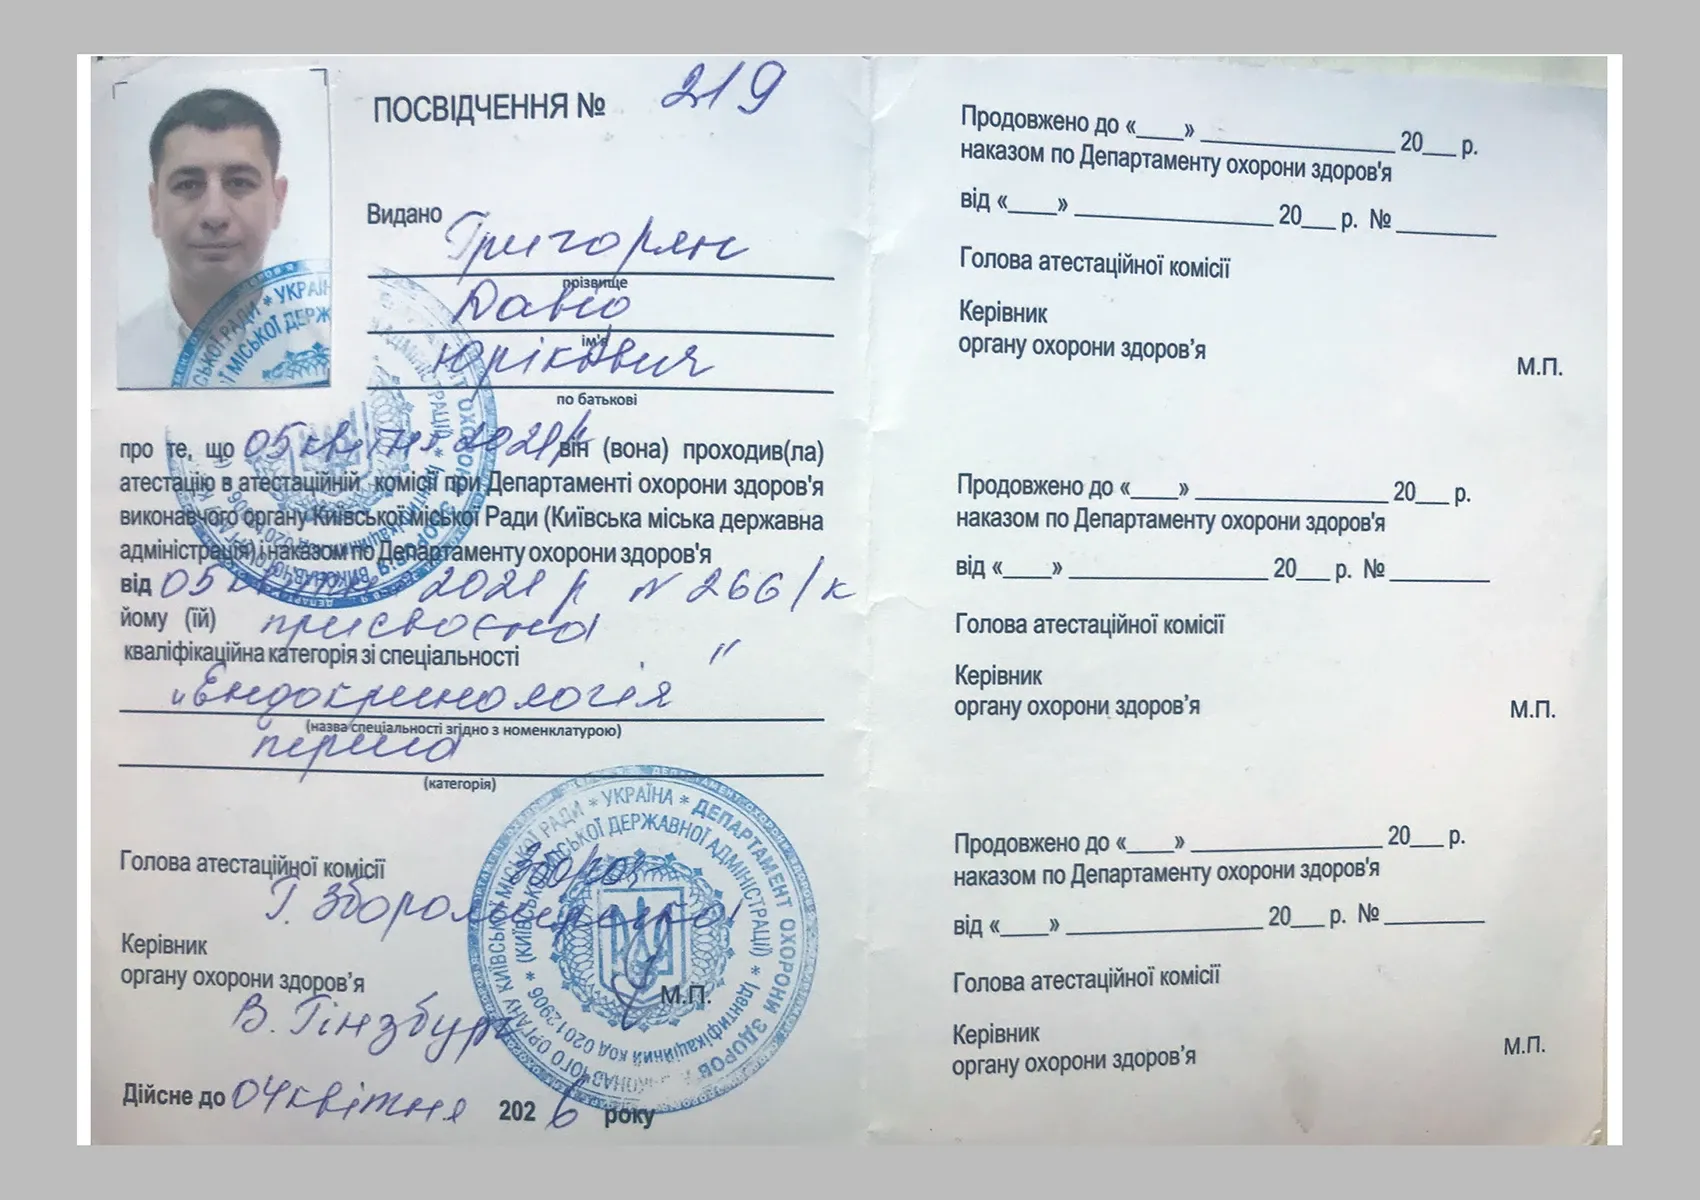 ПОСВІДЧЕННЯ № 219
Видано Григорян
прізвище
Давід
ім'я
Юрікович
по батькові
про те, що 05 квітня 2021р він (вона) проходив(ла)
атестацію в атестаційній комісії при Департаменті охорони здоров'я
виконавчого органу Київської міської Ради (Київська міська державна
адміністрація) і наказом по Департаменту охорони здоров'я
від 05 квітня 2021 р N 266/к
йому (їй) присвоєна
кваліфікаційна категорія зі спеціальності
„Ендокринологія"
(назва спеціальності згідно з номенклатурою)
перша
(категорія)
Голова атестаційної комісії
Г. Зборомирська
Керівник
органу охорони здоров’я
В. Гінзбург
М.П.
Дійсне до 04 квітня 2026 року
* УКРАЇНА * ДЕПАРТАМЕНТ ОХОРОНИ ЗДОРОВ'Я ВИКОНАВЧОГО ОРГАНУ КИЇВСЬКОЇ МІСЬКОЇ РАДИ
(КИЇВСЬКОЇ МІСЬКОЇ ДЕРЖАВНОЇ АДМІНІСТРАЦІЇ) * Ідентифікаційний код 02012906 *
Продовжено до «____» ________________ 20___ р.
наказом по Департаменту охорони здоров'я
від «____» ________________ 20___ р. № ________
Голова атестаційної комісії
Керівник
органу охорони здоров’я
М.П.
Продовжено до «____» ________________ 20___ р.
наказом по Департаменту охорони здоров'я
від «____» ________________ 20___ р. № ________
Голова атестаційної комісії
Керівник
органу охорони здоров’я
М.П.
Продовжено до «____» ________________ 20___ р.
наказом по Департаменту охорони здоров'я
від «____» ________________ 20___ р. № ________
Голова атестаційної комісії
Керівник
органу охорони здоров’я
М.П.